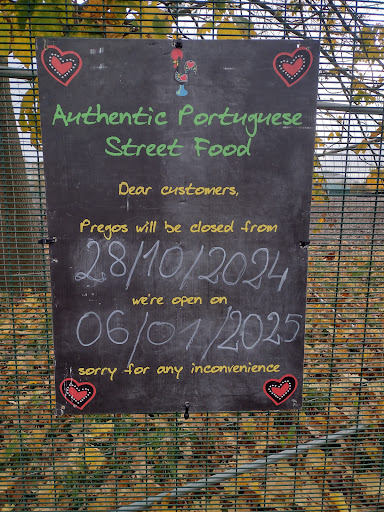 Authentic Portuguese
Street Food
Dear customers,
Pregos will be closed from
28/10/2024
we're open on
06/01/2025
sorry for any inconvenience